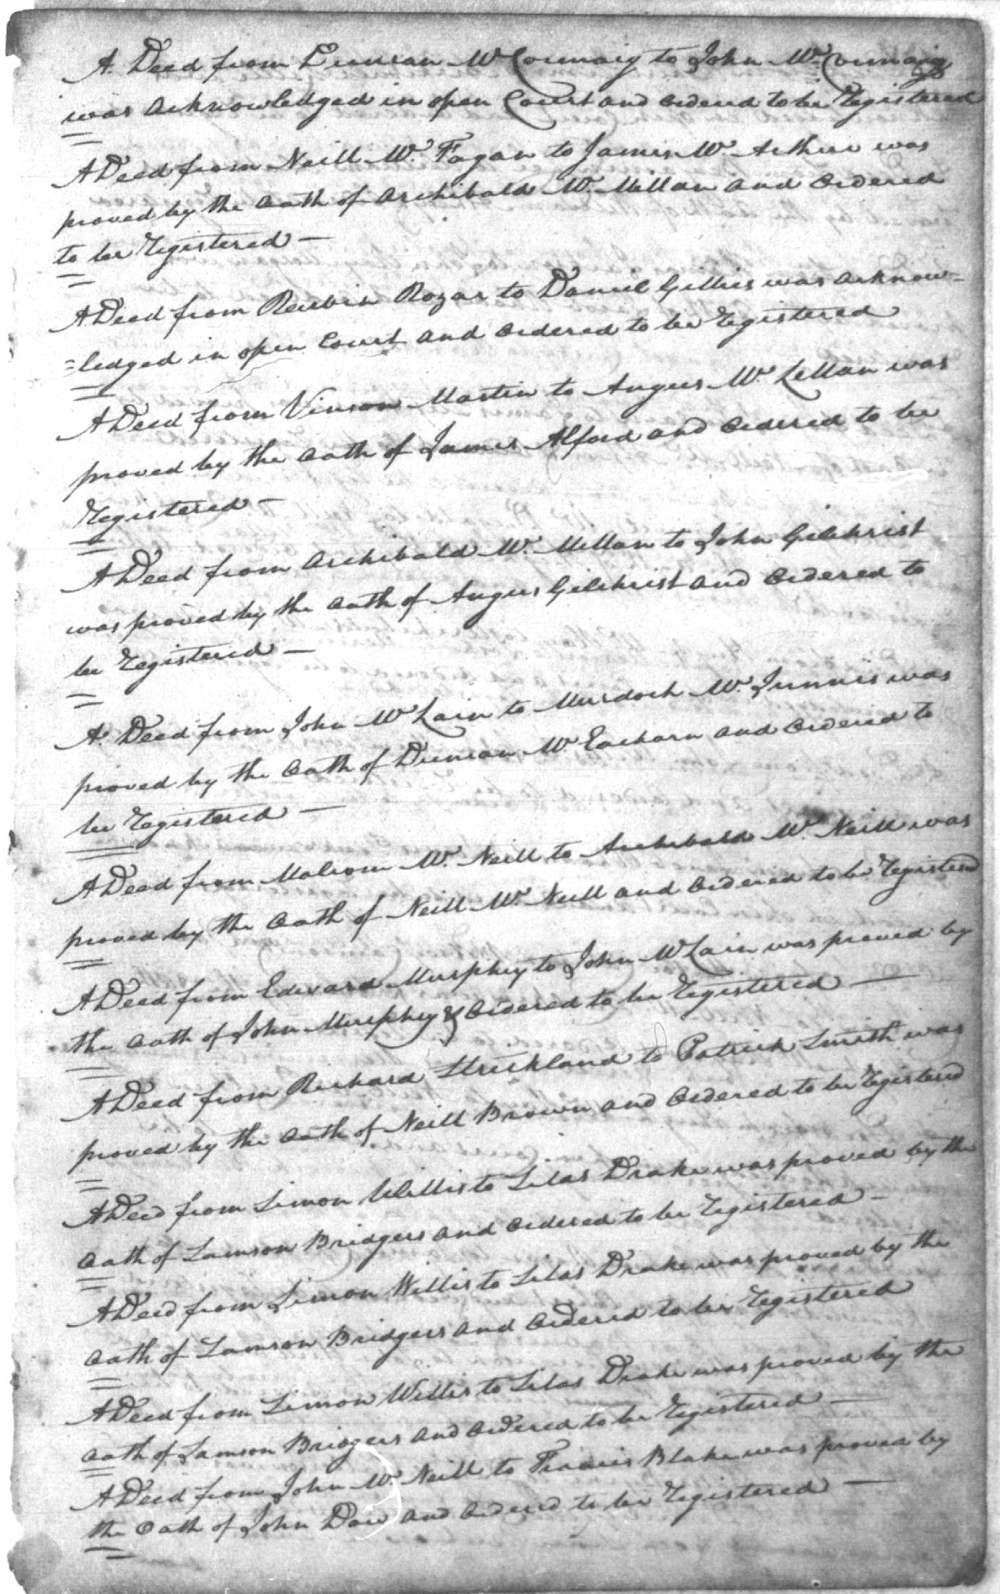 A Deed from Duncan Mc Cormaig to John Mc Cormaig
was acknowledged in open Court and ordered to be Registered
A Deed from Neill Mc Fagan to James Mc Arthur was
proved by the oath of Archibald Mc Millan and ordered
to be Registered —
A Deed from Reubin Rozar to Daniel Gillis was acknow-
=ledged in open Court and ordered to be Registered
A Deed from Vinson Martin to Angus Mc Lellan was
proved by the oath of James Alford and ordered to be
Registered —
A Deed from Archibald Mc Millan to John Gilchrist
was proved by the oath of Angus Gilchrist and ordered to
be Registered —
A Deed from John Mc Lain to Murdoch Mc Innnis was
proved by the oath of Duncan Mc Eacharn and ordered to
be Registered —
A Deed from Malcom Mc Neill to Archibald Mc Neill was
proved by the oath of Neill Mc Neill and ordered to be Registerd
A Deed from Edward Murphey to John Mc Lain was proved by
the oath of John Murphey & ordered to be Registered —
A Deed from Richard Strickland to Patrick Smith was
proved by the oath of Neill Brown and ordered to be Registerd
A Deed from Simon Willis to Silas Drake was proved by the
oath of Samson Bridgers and ordered to be Registered —
A Deed from Simon Willis to Silas Drake was proved by the
oath of Samson Bridgers and ordered to be Registered
A Deed from Simon Willis to Silas Drake was proved by the
oath of Samson Bridgers and ordered to be Registered —
A Deed from John Mc Neill to Francis Blake was proved by
the oath of John Dow and ordered to be Registered —